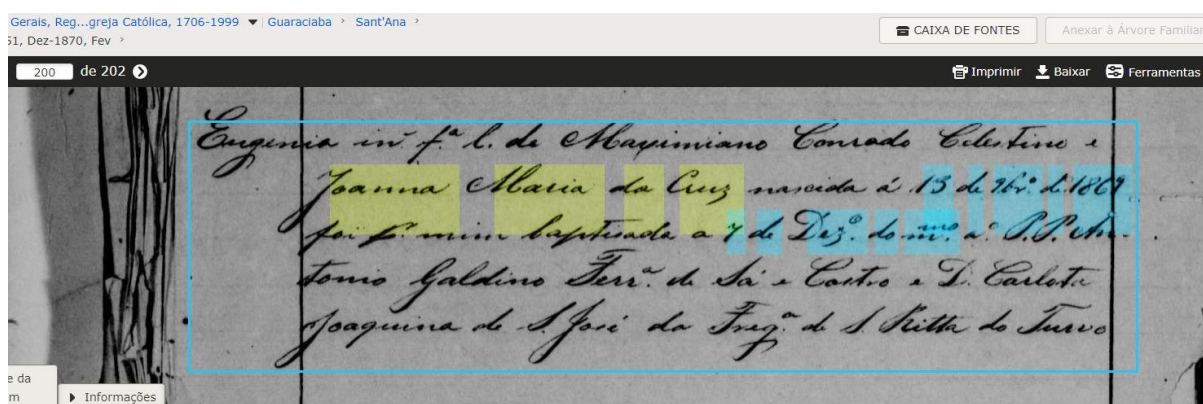 Gerais, Reg...greja Católica, 1706-1999 ▼ Guaraciaba > Sant'Ana >
51, Dez-1870, Fev >
CAIXA DE FONTES
Anexar à Árvore Familiar
200 de 202
Imprimir Baixar Ferramentas
Eugenia in. f.ª l. de Maximiano Conrado Celestino e
Joanna Maria da Cruz nascida á 13 de 9br.º de 1869
foi p.r mim baptisada a 7 de Dez.º do m.mo a.º P.P. An-
tonio Galdino Ferr.ª de Sá e Castro e D. Carlota
Joaquina de S. José da Freg.ª de S. Ritta do Turvo
e da
m
Informações